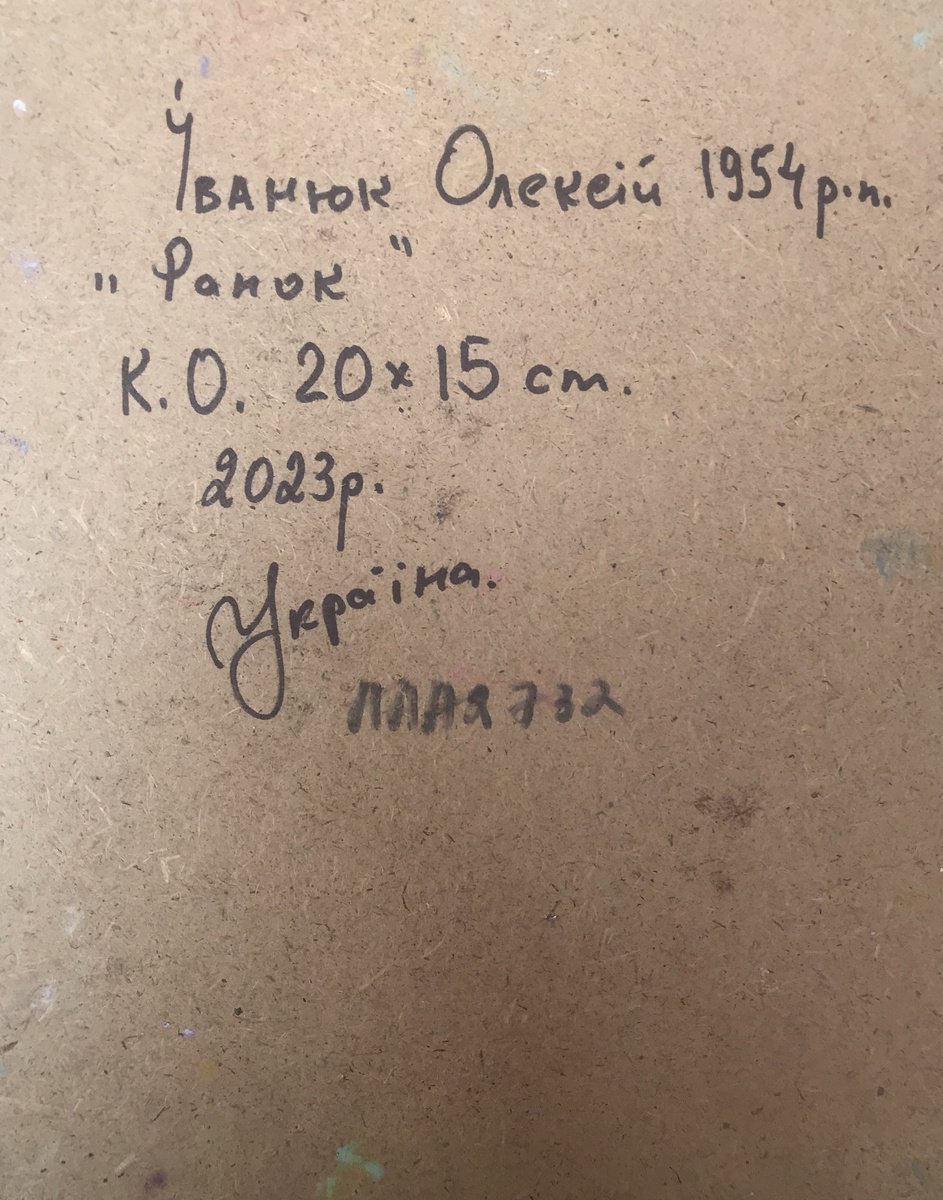 Іванюк Олексій 1954 р.н.
"Ранок"
К.О. 20×15 см.
2023р.
Україна.
ЛЛА2732